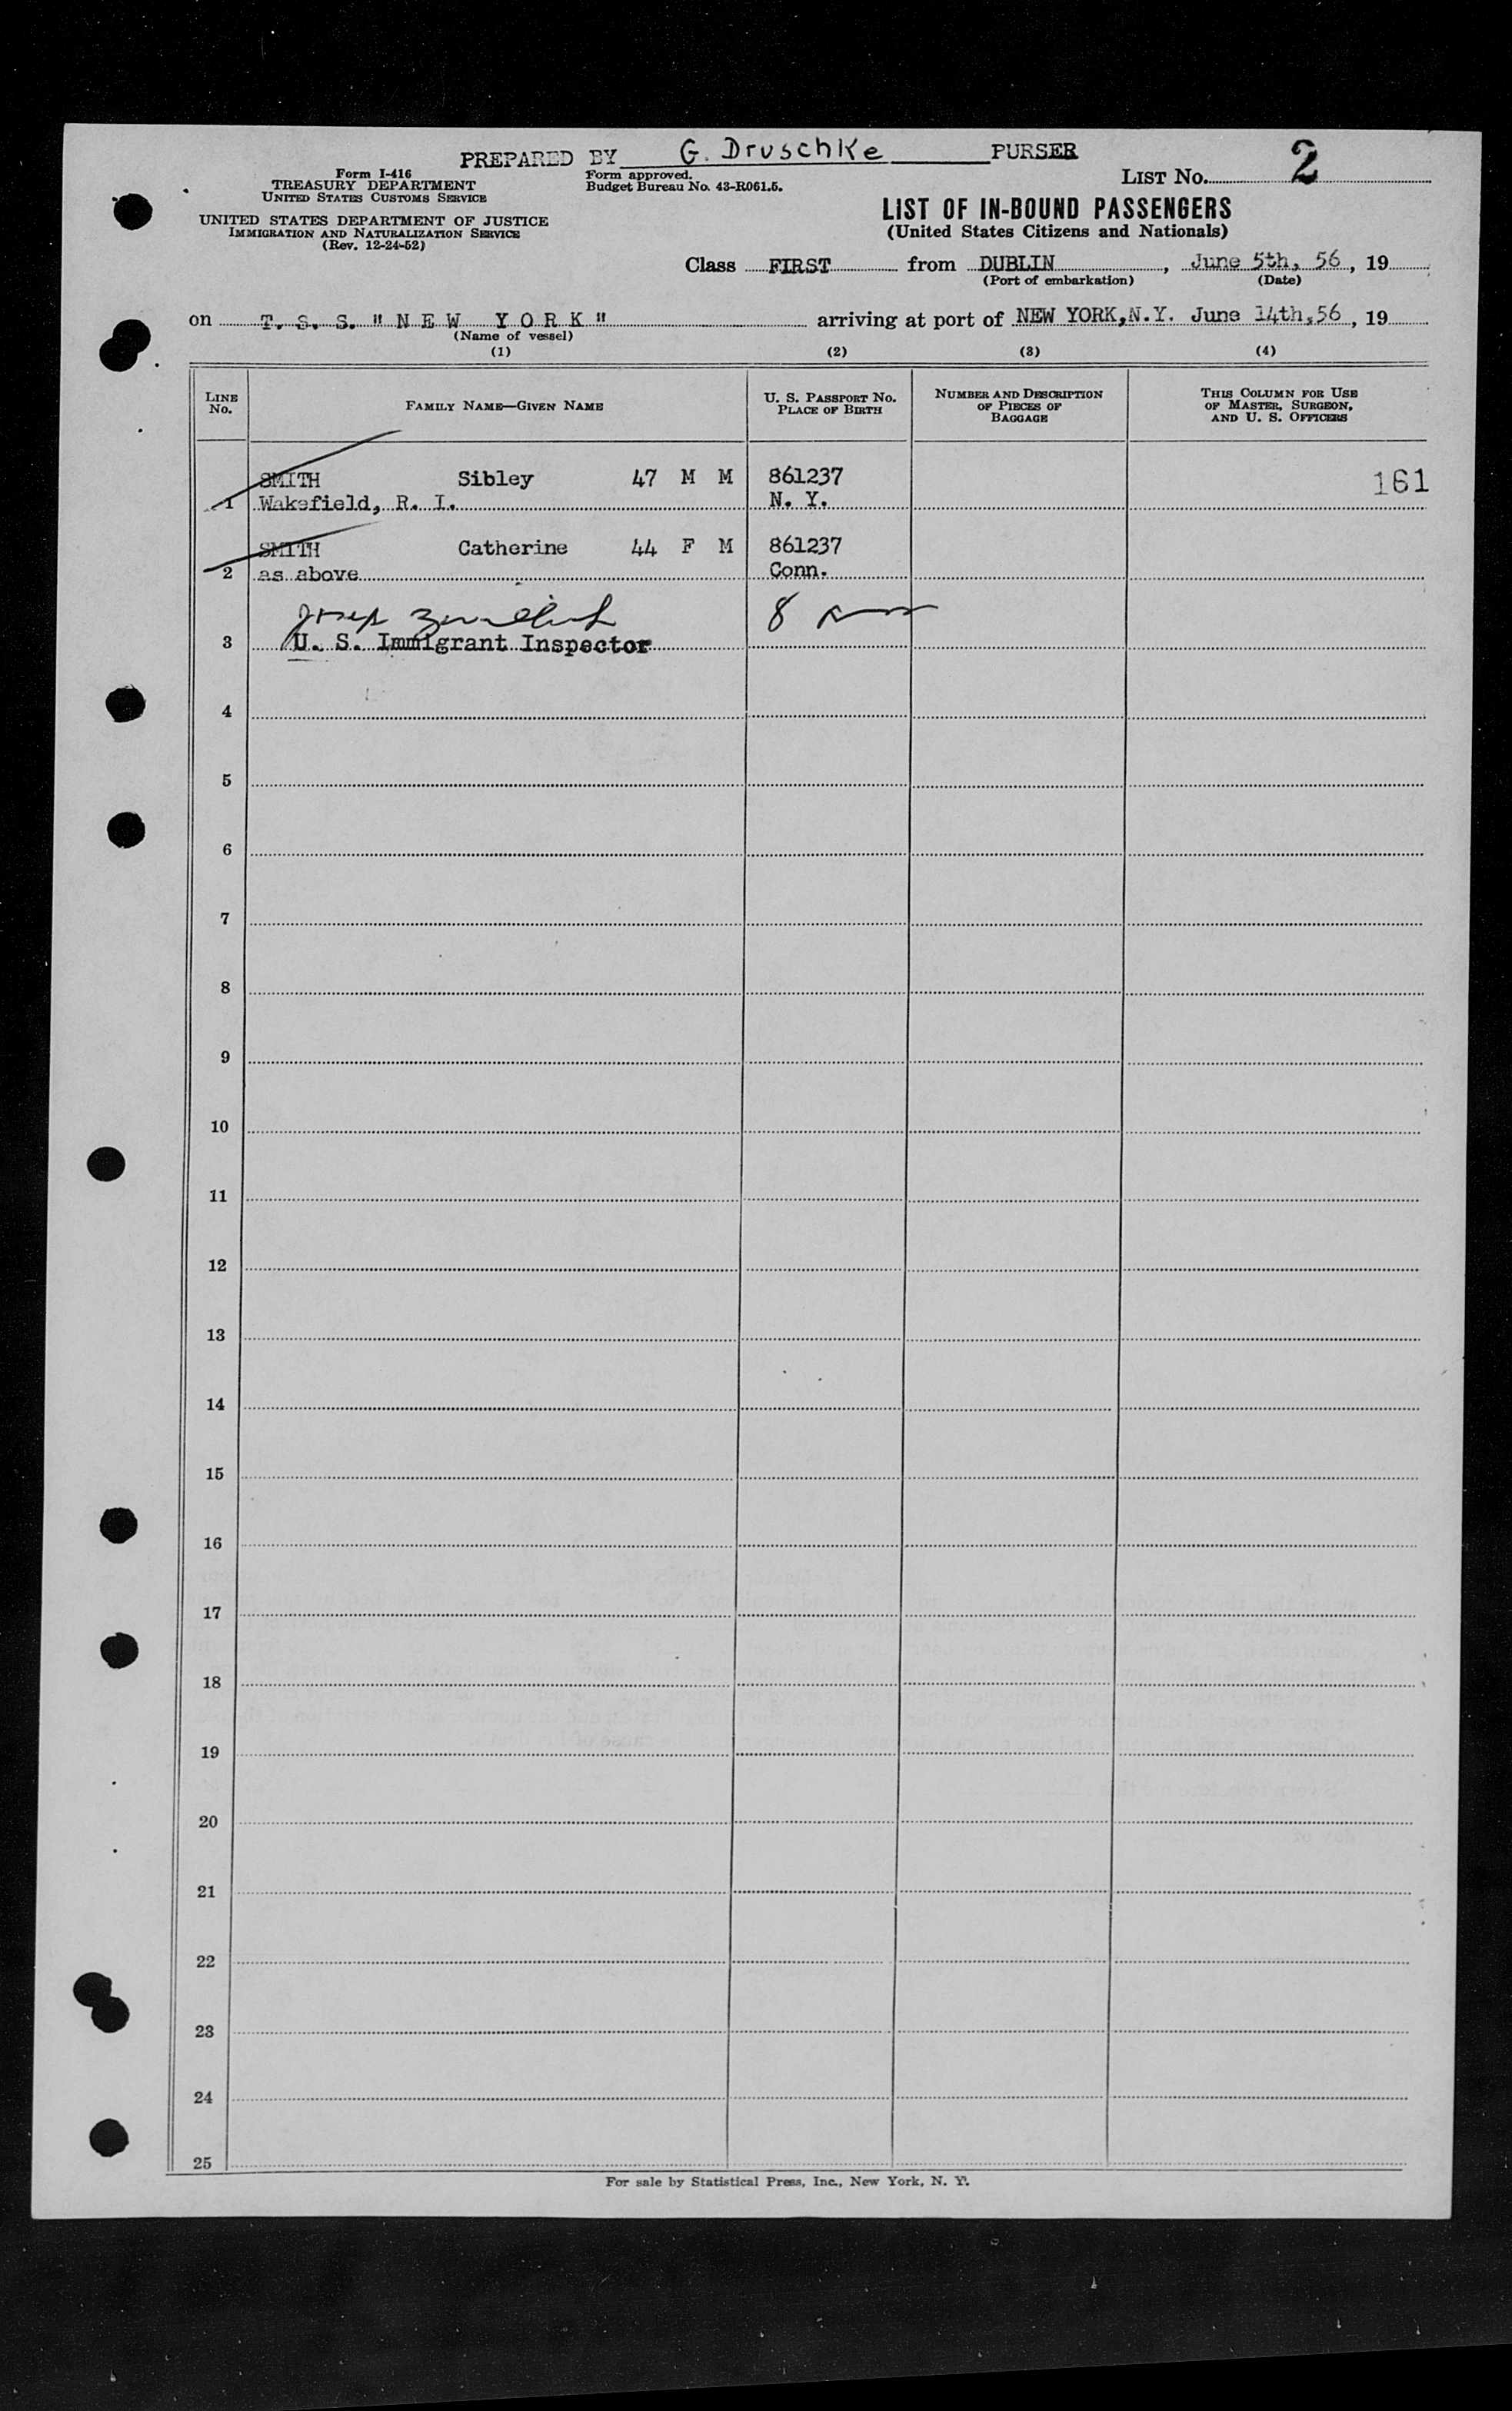 PREPARED BY G. Druschke PURSER
Form I-416
TREASURY DEPARTMENT
UNITED STATES CUSTOMS SERVICE
Form approved.
Budget Bureau No. 43-R061.5.
LIST NO. 2
UNITED STATES DEPARTMENT OF JUSTICE
IMMIGRATION AND NATURALIZATION SERVICE
(Rev. 12-24-52)
LIST OF IN-BOUND PASSENGERS
(United States Citizens and Nationals)
Class FIRST from DUBLIN, June 5th, 56, 19
(Port of embarkation) (Date)
on T. S. S. "N E W Y O R K" arriving at port of NEW YORK, N.Y. June 14th, 56, 19
(Name of vessel)
(1) (2) (3) (4)
LINE No. FAMILY NAME—GIVEN NAME U. S. PASSPORT NO. PLACE OF BIRTH NUMBER AND DESCRIPTION OF PIECES OF BAGGAGE THIS COLUMN FOR USE OF MASTER, SURGEON, AND U. S. OFFICERS
SMITH Sibley 47 M M 861237 161
1 Wakefield, R. I. N. Y.
SMITH Catherine 44 F M 861237
2 as above Conn.
8
3 U. S. Immigrant Inspector
4
5
6
7
8
9
10
11
12
13
14
15
16
17
18
19
20
21
22
23
24
25
For sale by Statistical Press, Inc., New York, N. Y.